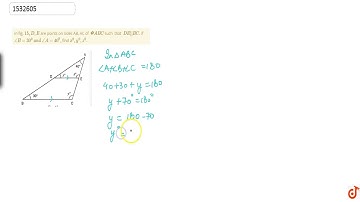 1532605
In fig. 16, D, E are points on sides AB, AC of ABC such that DE||BC. If
∠B = 30° and ∠A = 40°, find x°, y°, z°.
In ΔABC
∠A+∠B+∠C = 180
40+30+y = 180
y + 70° = 180°
y = 180-70
y° =
doubtnut